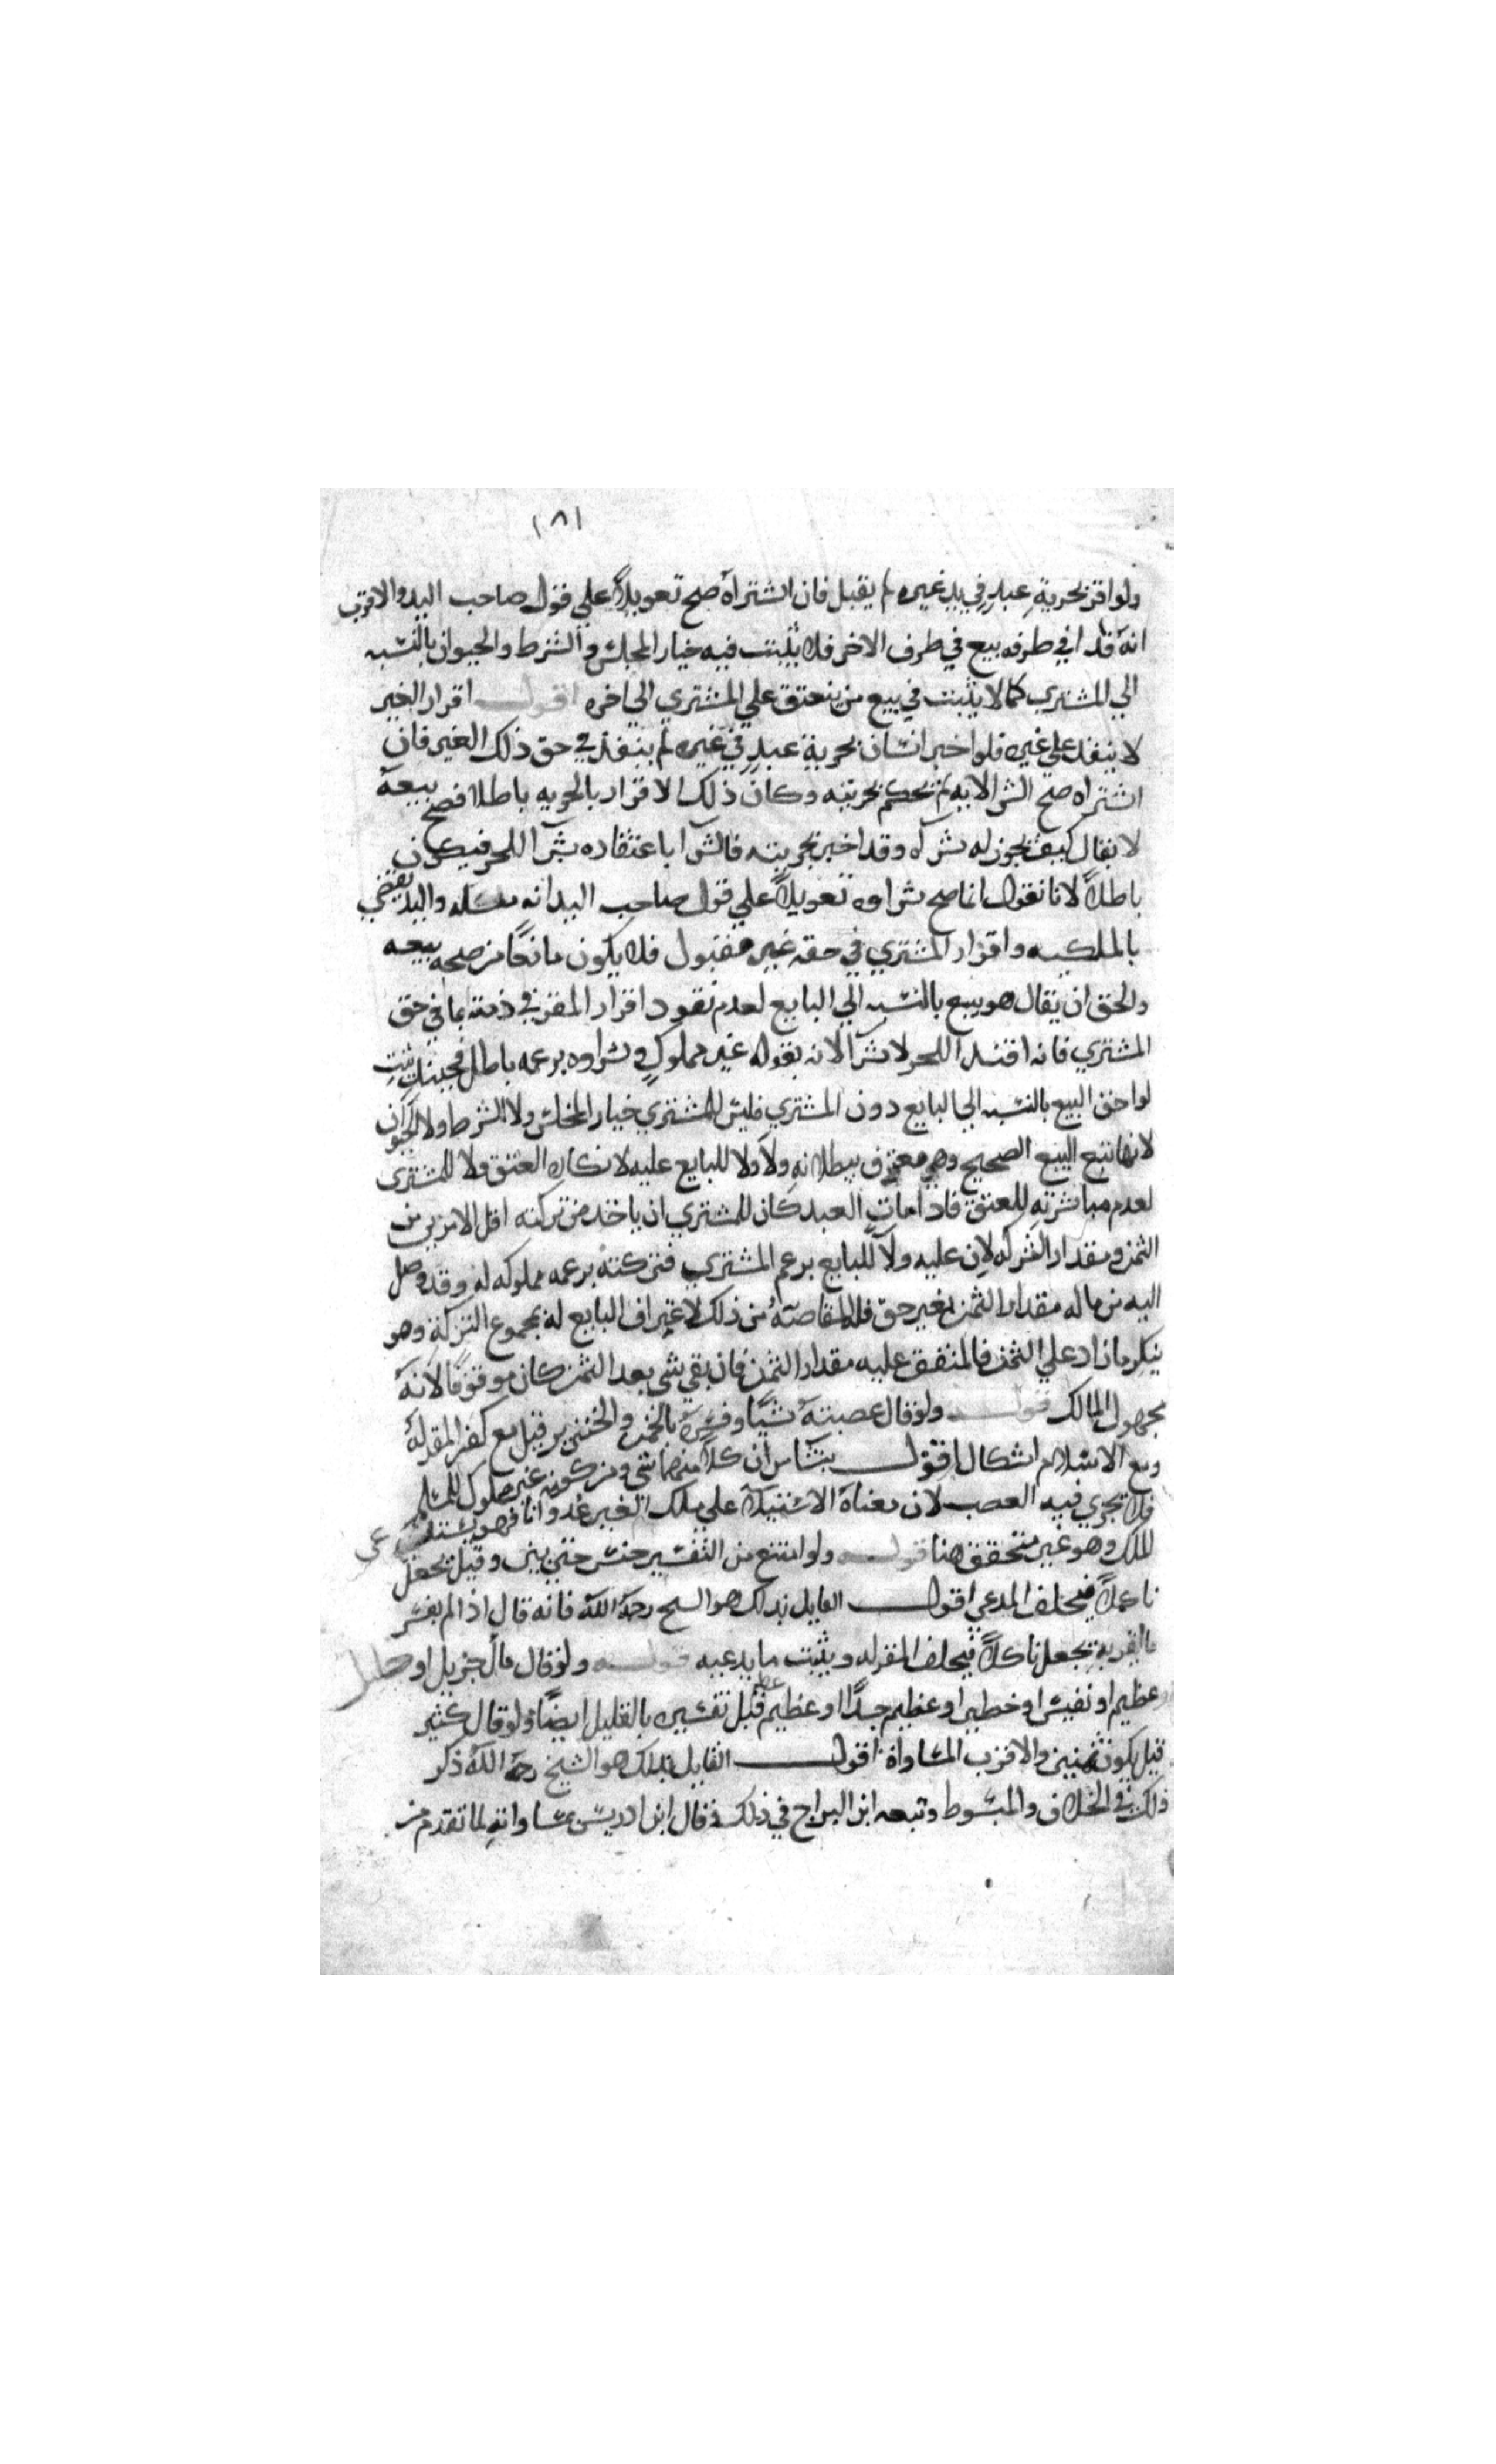 ١٨١
ولو اقر بحرية عبد في يد غيره لم يقبل فان اشتراه صح تعويلا علي قول صاحب اليد والاقرب
انه فدا في طرفه بيع في طرف الاخر فلا يثبت فيه خيار المجلس والشرط والحيوان بالنسبه
الي المشتري كما لا يثبت في بيع من ينعتق علي المشتري الي اخره اقول اقرار الغير
لا ينفذ علي غيره فلو اخبر انسان بحرية عبد في غيره لم ينفذ في حق ذلك الغير فان
اشتراه صح الشرا لانه لم يحكم بحريته وكان ذلك الاقرار بالحريه باطلا فصح بيعه
لا يقال كيف يجوز له شراه وقد اخبر بحريته فالشرا باعتقاده شرا للحر فيكون
باطلا لانا نقول انما صح شراوه تعويلا علي قول صاحب اليد انه ملكه واليد يقتضي
بالملكيه واقرار المشتري في حقه غير مقبول فلا يكون مانعا من صحه بيعه
والحق ان يقال هو بيع بالنسبه الي البايع لعدم نفود اقرار المقر في ذمته بما في حق
المشتري فانه افتدا للحر لا شرا لانه بقوله غير مملوك وشراوه بزعمه باطل فحينئذ يثبت
لواحق البيع بالنسبه الي البايع دون المشتري فليس للمشتري خيار المجلس ولا الشرط ولا الحيوان
لانها تتبع البيع الصحيح وهو معترف ببطلانه ولا ولا للبايع عليه لانكاره العتق ولا للمشتري
لعدم مباشرته للعتق فاذا مات العبد كان للمشتري ان ياخذ من تركته اقل الامرين من
الثمن ومقدار التركه لان عليه ولا للبايع بزعم المشتري فتركته بزعمه مملوكه له وقد وصل
اليه من ماله مقدار الثمن بغير حق فله المقاصة من ذلك لاعتراف البايع له بمجموع التركة وهو
ينكر ما زاد علي الثمن فالمتفق عليه مقدار الثمن فان بقي شي بعد الثمن كان موقوفا لانه
مجهول المالك قوله ولو قال غصبته شيا وفسره بالخمر والخنزير قبل مع كفر المقر له
ومع الاسلام اشكال اقول ينشا من ان كلا منهما شي ومن كونه غير مملوك للمسلم
فلا يجري فيه الغصب لان معناه الاستيلا علي ملك الغير عدوانا فهو يستدعي
الملك وهو غير متحقق هنا قوله ولو امتنع من التفسير حبس حتي يبين وقيل يجعل
ناكلا فيحلف المدعي اقول القايل بذلك هو الشيخ رحمه الله فانه قال اذا لم يفسر
ما اقر به يجعل ناكلا فيحلف المقر له ويثبت ما يدعيه قوله ولو قال مال جزيل او جليل
او عظيم او نفيس او خطير او عظيم جدا او عظيم عظيم قبل تفسيره بالقليل ايضا ولو قال كثير
قيل يكون ثمنين والاقرب المساواة اقول القايل بذلك هو الشيخ رحمه الله ذكر
ذلك في الخلاف والمبسوط وتبعه ابن البراج في ذلك وقال ابن ادريس بمساواته لما تقدم من